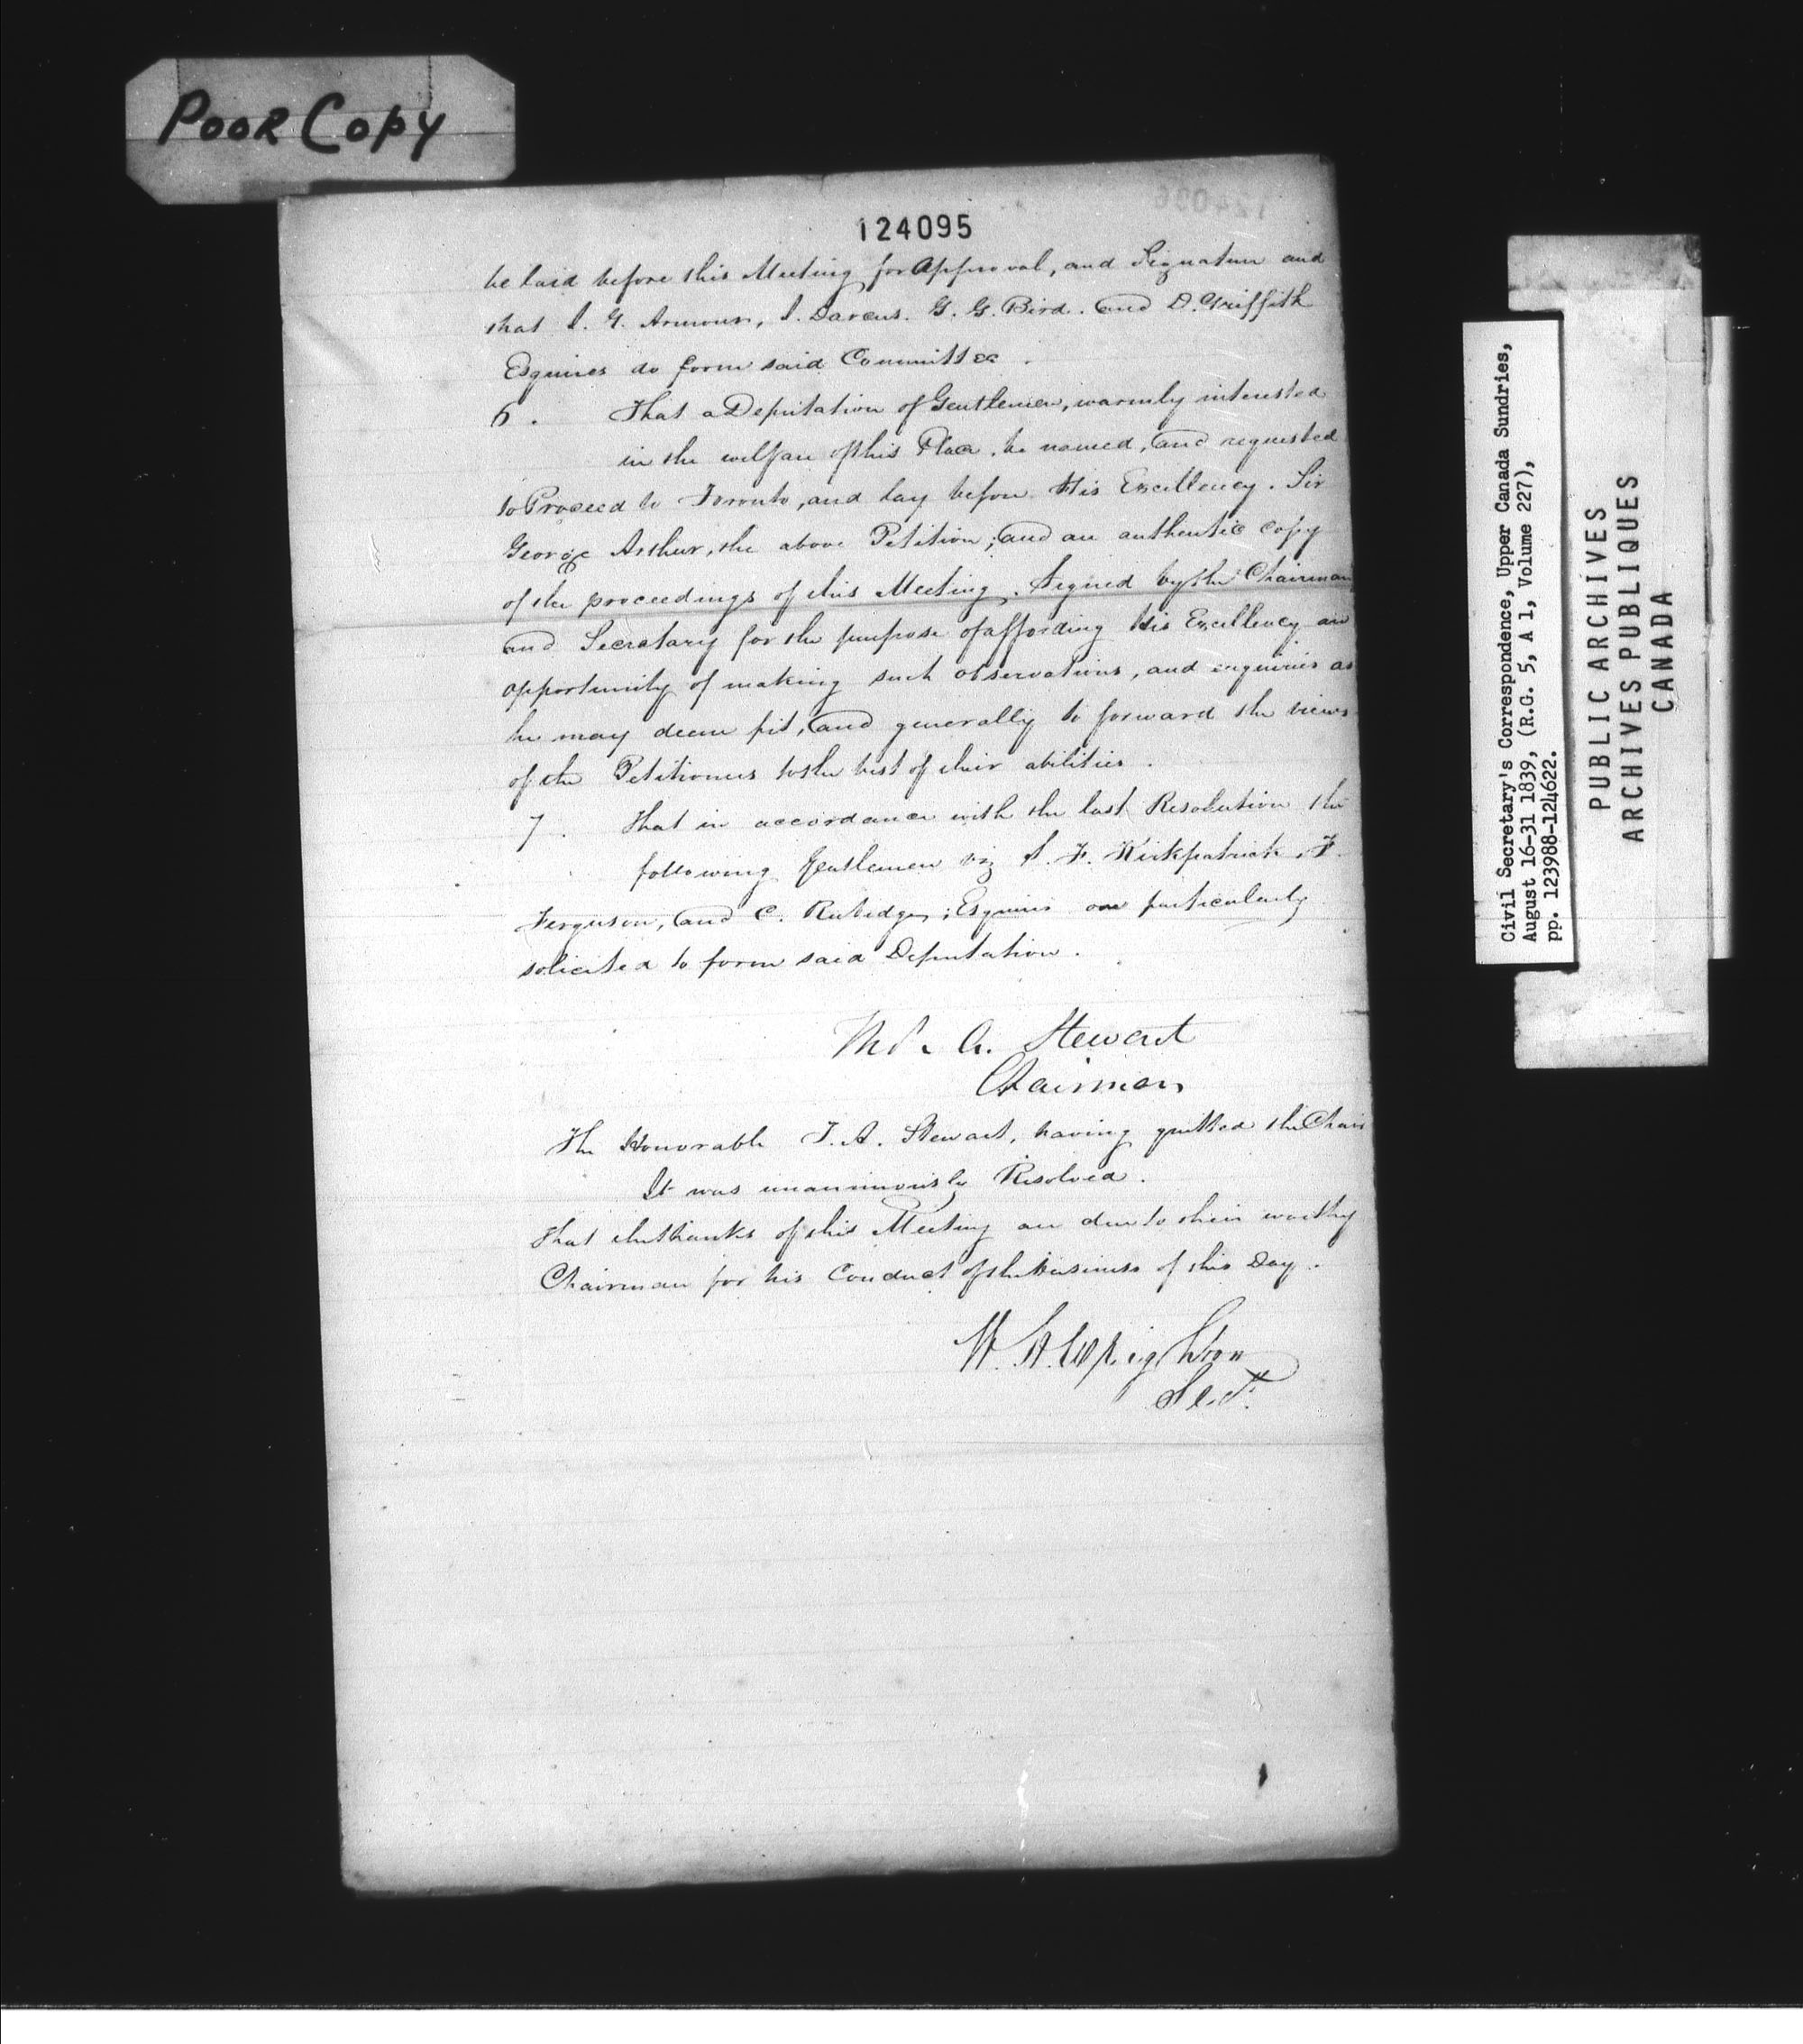 POOR COPY
124095
be laid before this Meeting for Approval, and Signature and
that S. G. Armour, S. Darcus. G. G. Bird. and D. Griffith
Esquires do form said Committee.
6. That a Deputation of Gentlemen, warmly interested
in the welfare of this Place. be named, and requested
to Proceed to Toronto, and lay before His Excellency. Sir
George Arthur, the above Petition; and an authentic copy
of the proceedings of this Meeting. Signed by the Chairman
and Secretary for the purpose of affording His Excellency an
opportunity of making such observations, and enquiries as
he may deem fit, and generally to forward the views
of the Petitioners to the best of their abilities.
7. That in accordance with the last Resolution the
following Gentlemen viz S. F. Kirkpatrick, F.
Ferguson, and C. Rubidge; Esquires are particularly
solicited to form said Deputation.
Thos. A. Stewart
Chairman
The Honorable T. A. Stewart, having quitted the Chair
It was unanimously Resolved.
That the thanks of this Meeting are due to their worthy
Chairman for his Conduct of the Business of this Day.
W. H. Wrighton
Secy.
Civil Secretary's Correspondence, Upper Canada Sundries,
August 16-31 1839, (R.G. 5, A 1, Volume 227),
pp. 123988-124622.
PUBLIC ARCHIVES
ARCHIVES PUBLIQUES
CANADA